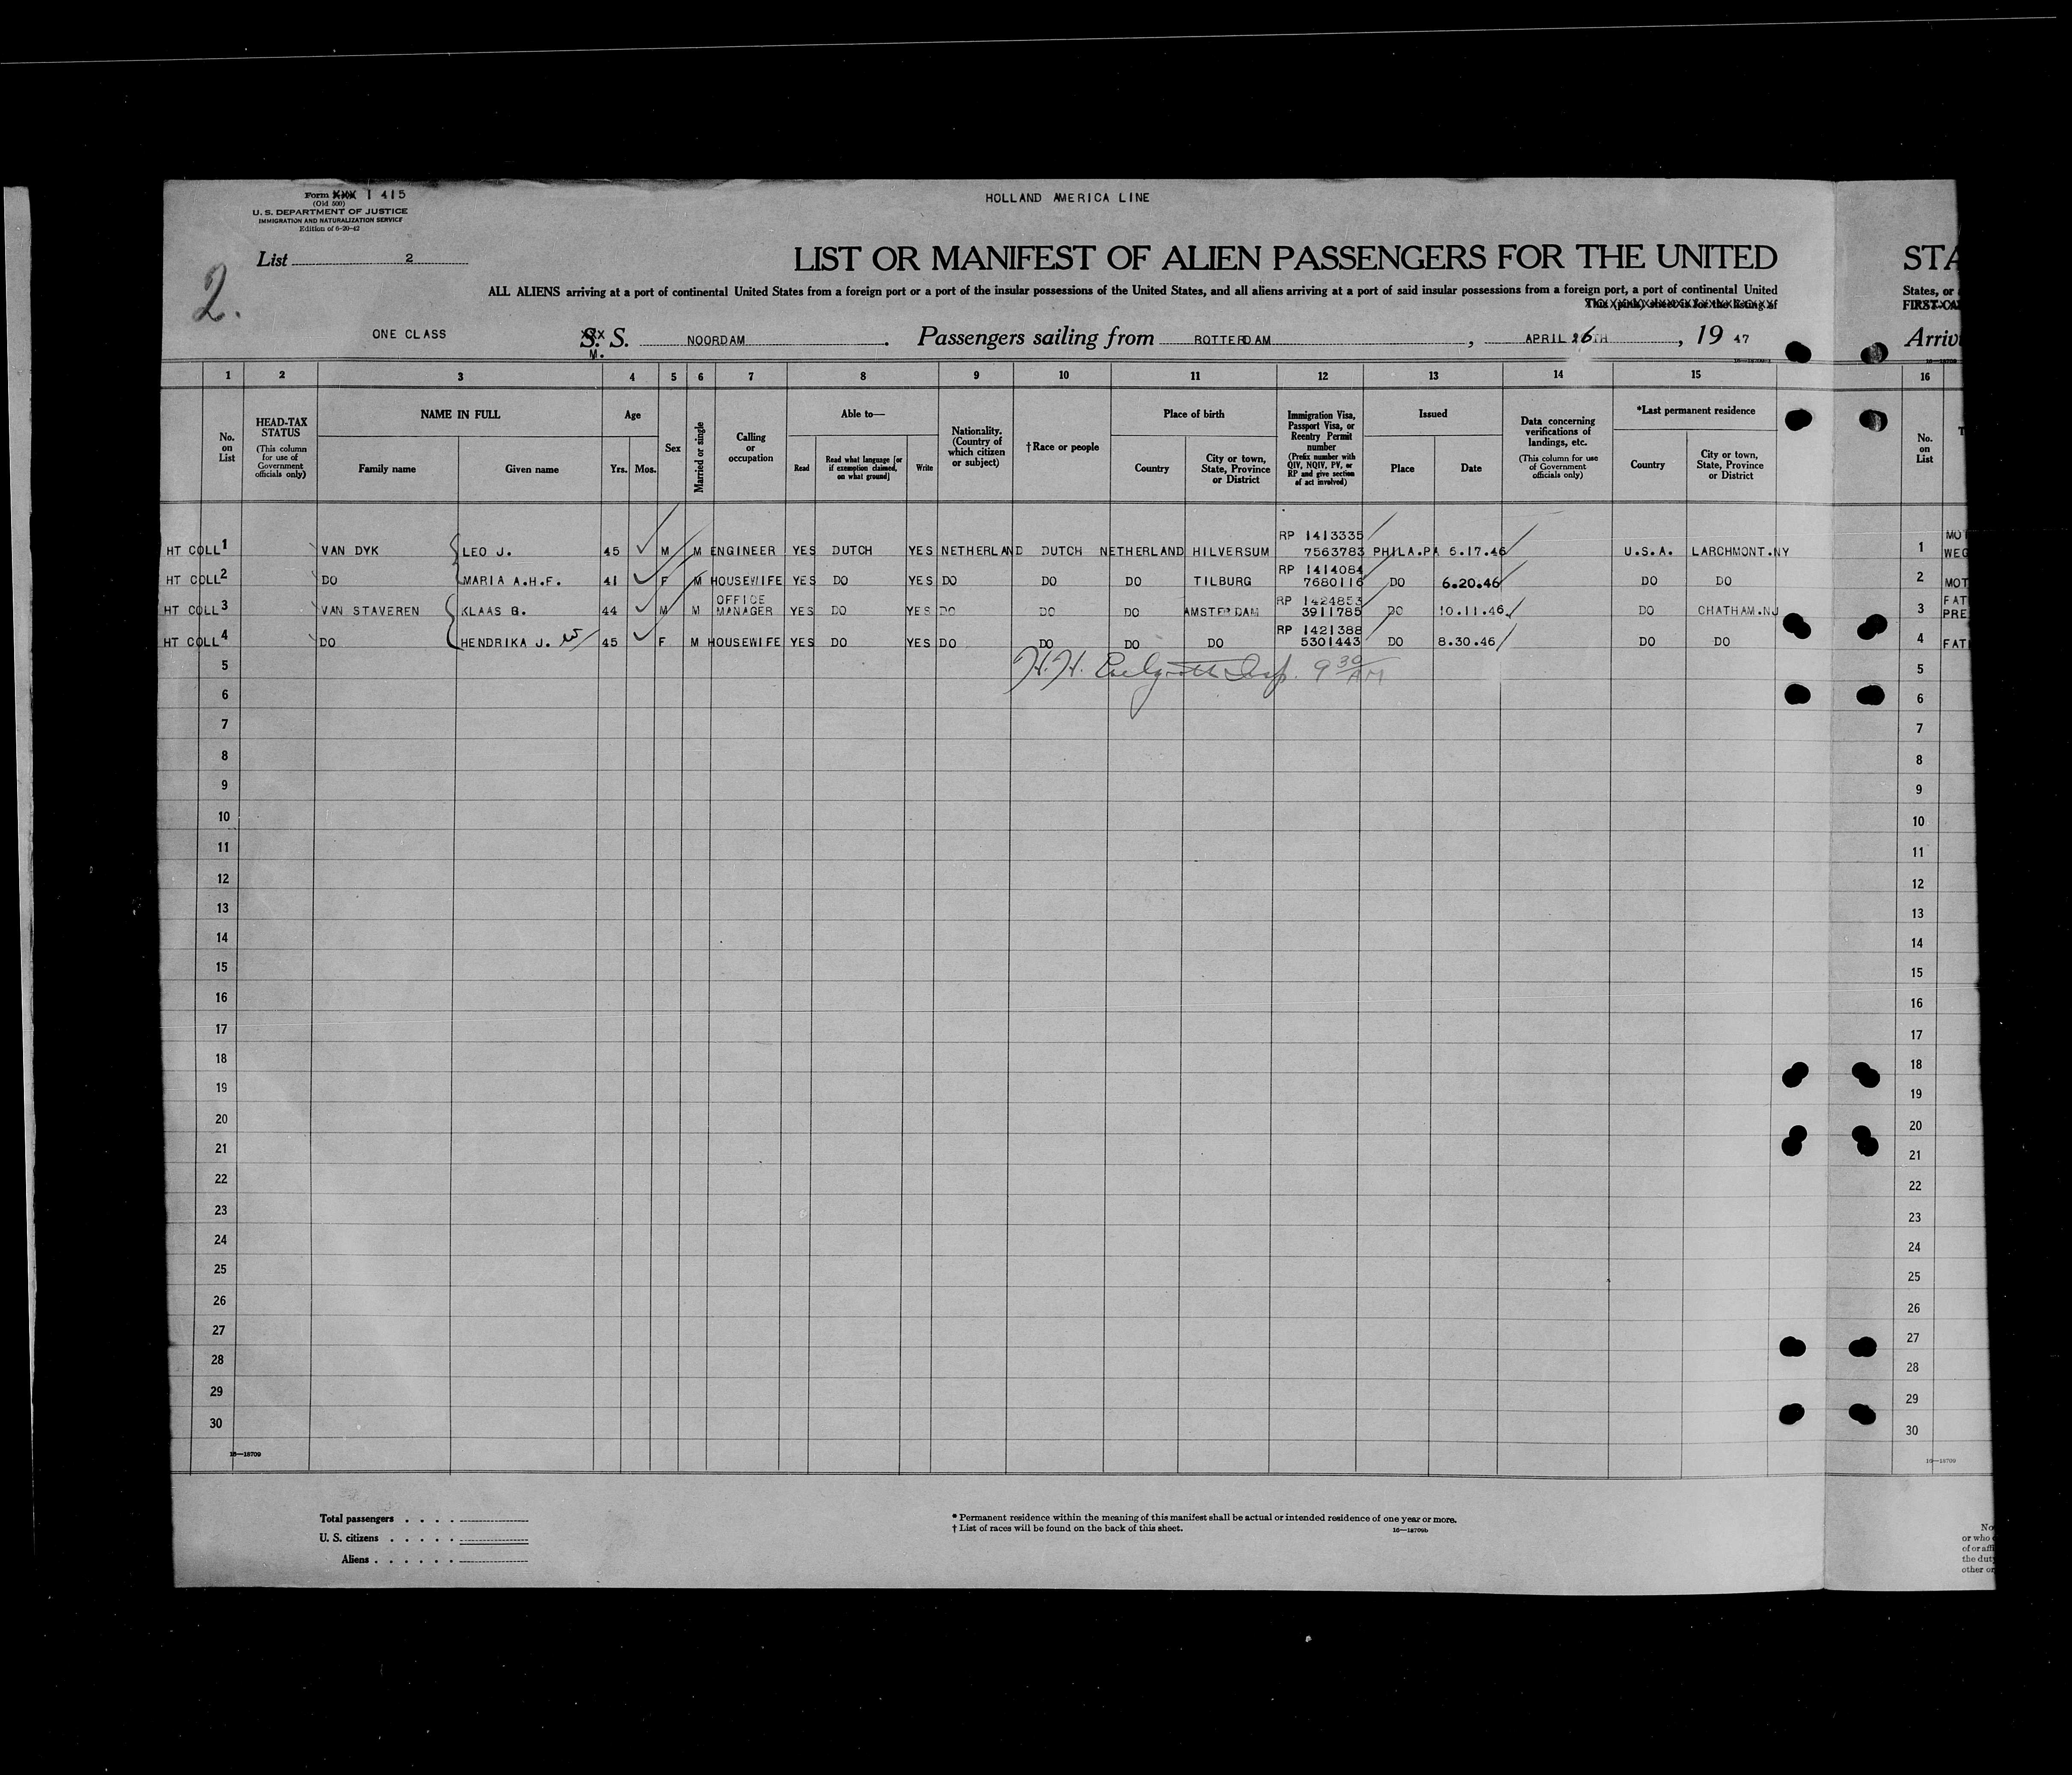 Form XXX I 415
(Old 500)
U. S. DEPARTMENT OF JUSTICE
IMMIGRATION AND NATURALIZATION SERVICE
Edition of 6-20-42
HOLLAND AMERICA LINE
List 2
2.
LIST OR MANIFEST OF ALIEN PASSENGERS FOR THE UNITED
STA
ALL ALIENS arriving at a port of continental United States from a foreign port or a port of the insular possessions of the United States, and all aliens arriving at a port of said insular possessions from a foreign port, a port of continental United
States, or
This (pink) sheet is for the listing of
FIRST-CA
ONE CLASS S. S. NOORDAM . Passengers sailing from ROTTERDAM , APRIL 26TH , 19 47
M.
Arriv
1 2 3 4 5 6 7 8 9 10 11 12 13 14 15 16
No. on List
HEAD-TAX STATUS
(This column for use of Government officials only)
NAME IN FULL
Family name
Given name
Age
Yrs. Mos.
Sex
Married or single
Calling or occupation
Able to—
Read
Read what language [or if exemption claimed, on what ground]
Write
Nationality. (Country of which citizen or subject)
†Race or people
Place of birth
Country
City or town, State, Province or District
Immigration Visa, Passport Visa, or Reentry Permit number
(Prefix number with QIV, NQIV, PV, or RP and give section of act involved)
Issued
Place
Date
Data concerning verifications of landings, etc.
(This column for use of Government officials only)
*Last permanent residence
Country
City or town, State, Province or District
No. on List
HT COLL 1 VAN DYK LEO J. 45 M M ENGINEER YES DUTCH YES NETHERLAND DUTCH NETHERLAND HILVERSUM RP 1413335 7563783 PHILA.PA 6.17.46 U.S.A. LARCHMONT.NY 1
HT COLL 2 DO MARIA A.H.F. 41 F M HOUSEWIFE YES DO YES DO DO DO TILBURG RP 1414084 7680116 DO 6.20.46 DO DO 2 MOT
HT COLL 3 VAN STAVEREN KLAAS G. 44 M M OFFICE MANAGER YES DO YES DO DO DO AMSTERDAM RP 1424853 3911785 DO 10.11.46 DO CHATHAM.NJ 3 FAT PRE
HT COLL 4 DO HENDRIKA J. 45 F M HOUSEWIFE YES DO YES DO DO DO DO RP 1421388 5301443 DO 8.30.46 DO DO 4 FAT
5 H.H. Insp. 9 30 AM 5
6 6
7 7
8 8
9 9
10 10
11 11
12 12
13 13
14 14
15 15
16 16
17 17
18 18
19 19
20 20
21 21
22 22
23 23
24 24
25 25
26 26
27 27
28 28
29 29
30 30
16—18709
16—18709
Total passengers . . . .
U. S. citizens . . . . .
Aliens . . . . . .
* Permanent residence within the meaning of this manifest shall be actual or intended residence of one year or more.
† List of races will be found on the back of this sheet.
16—18709b
No
or who
of or affi
the dut
other or